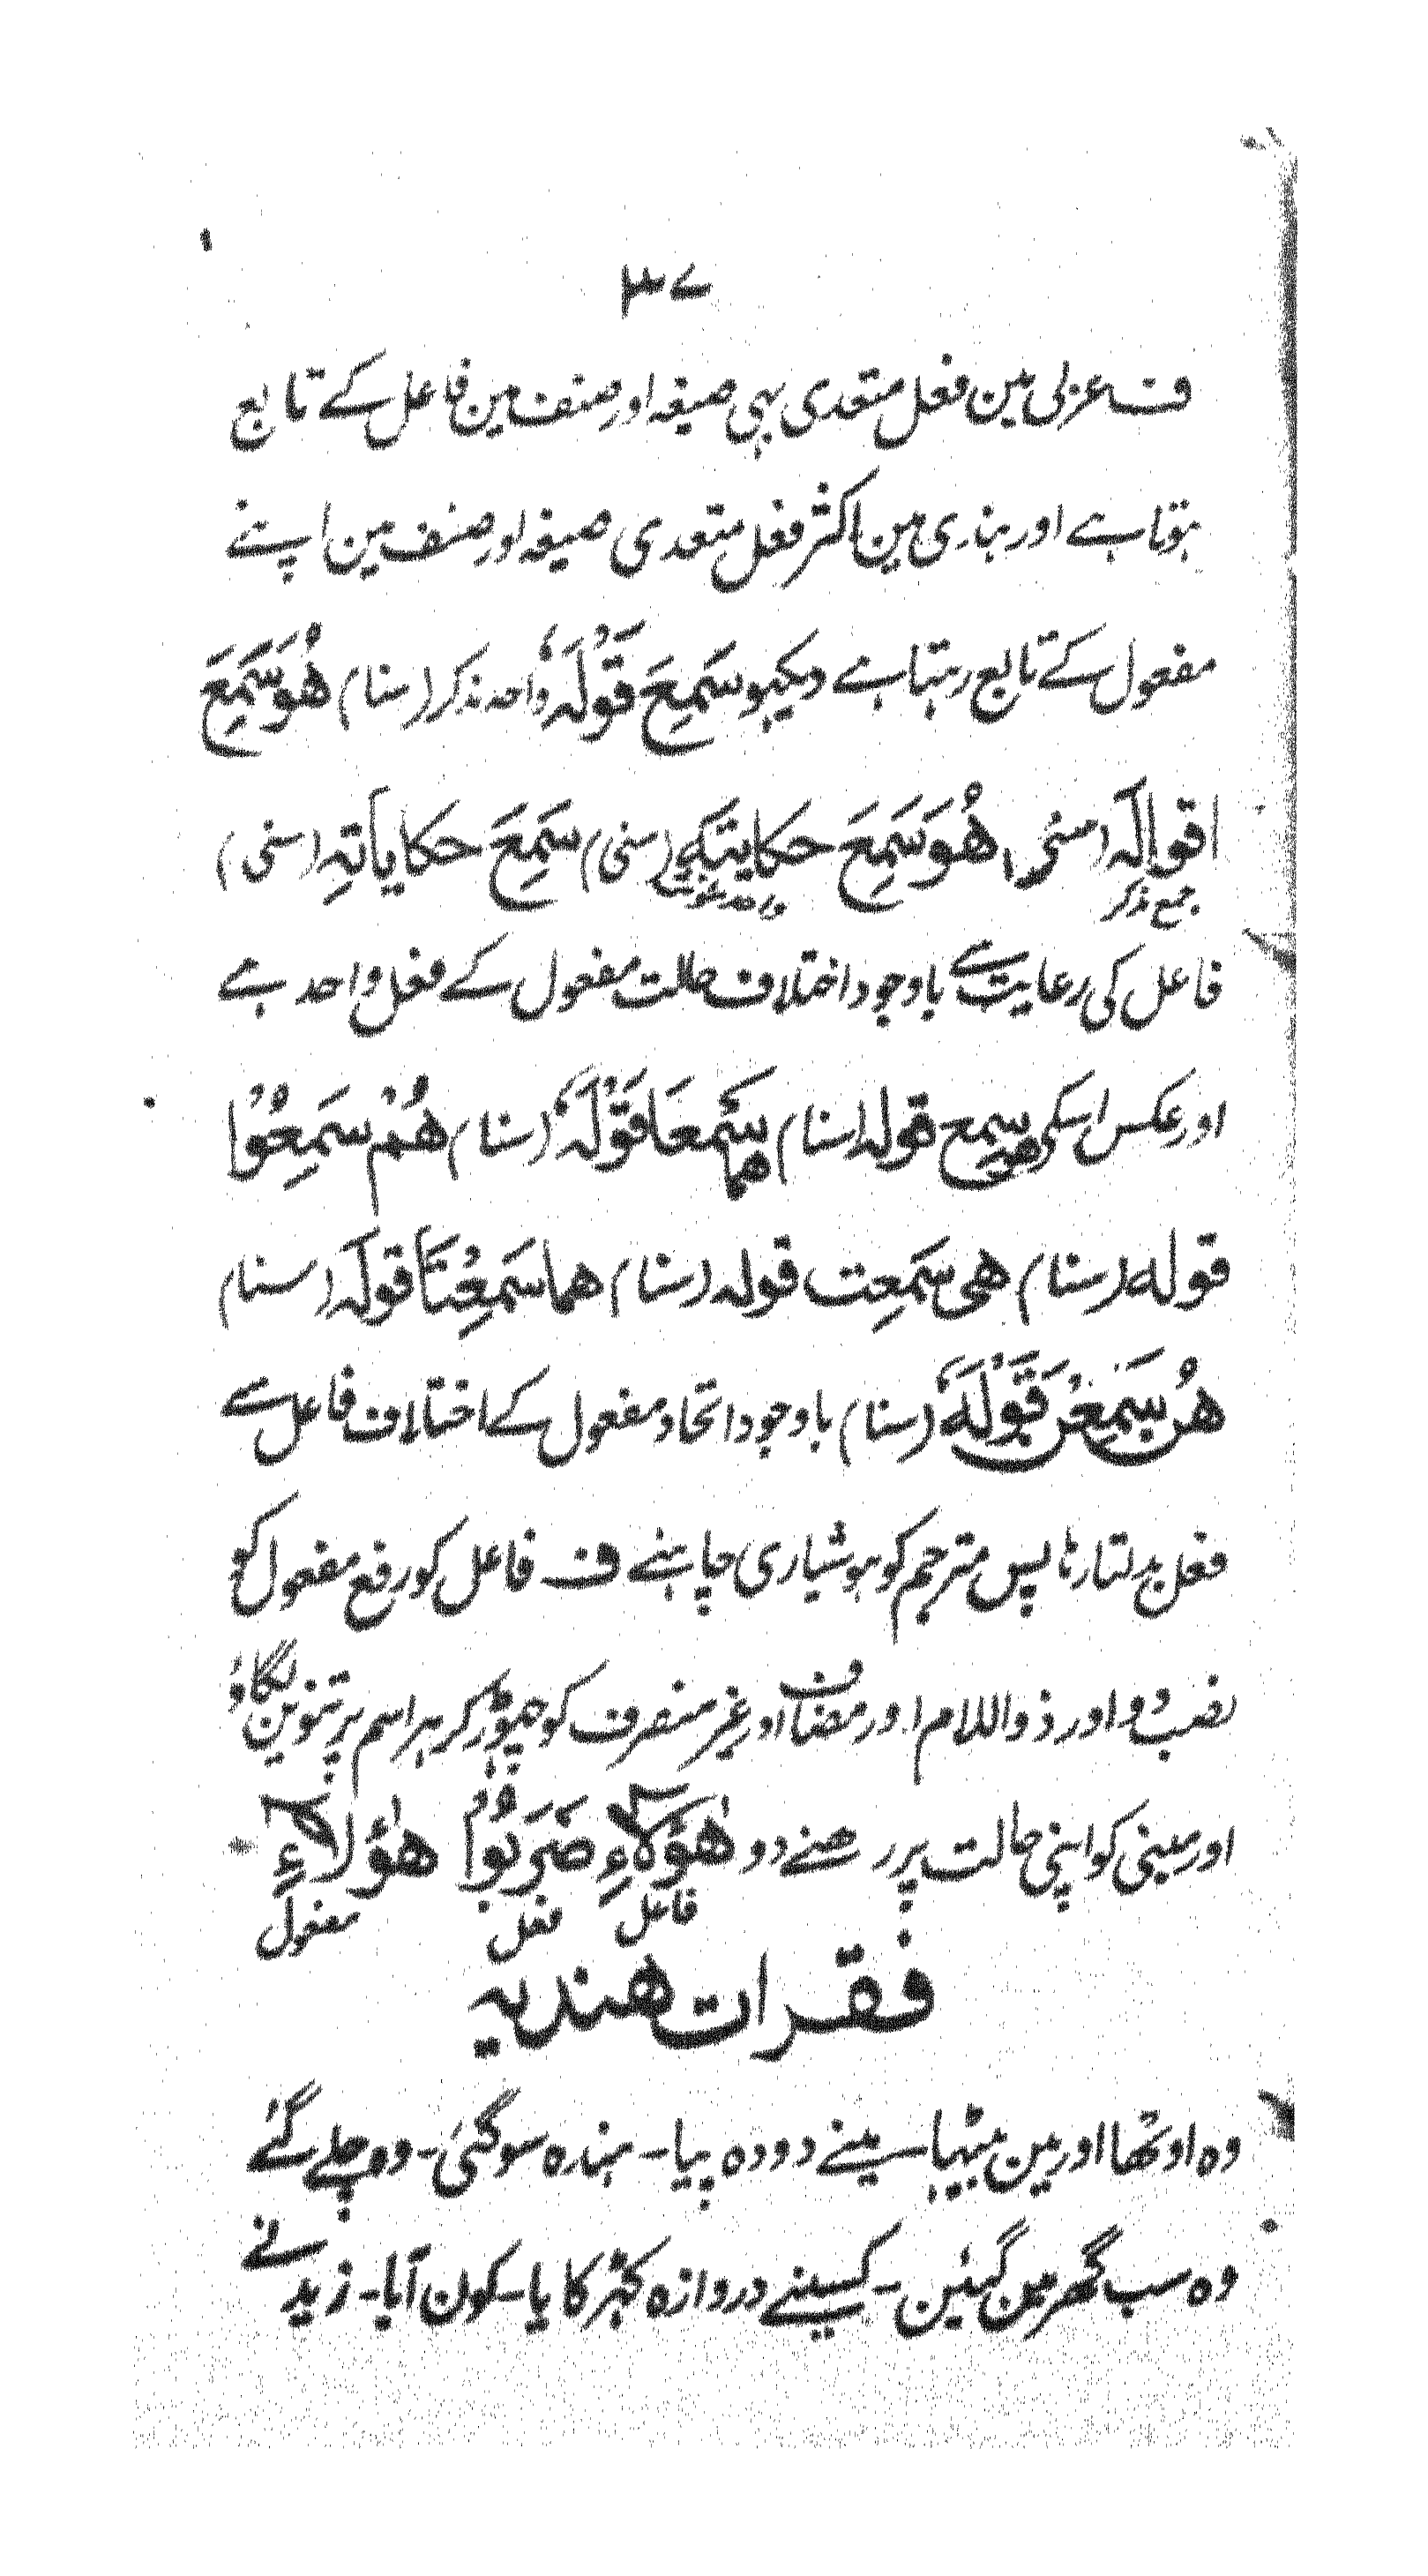 ۳۷
ف عربی مین فعل متعدی بہی صیغہ اور صنف مین فاعل کے تابع
ہوتا ہے اور ہندی مین اکثر فعل متعدی صیغہ اور صنف مین اپنے
مفعول کے تابع رہتا ہے دیکہو سَمِعَ قَوْلَہٗ واحد مذکر (سنا) ھُوَ سَمِعَ
اقوالَہ (سنی) ھُوَ سَمِعَ حکایتَہٗ (سنی) سَمِعَ حکایاتِہِ (سنی)
جمع مذکر واحد مؤنث
فاعل کی رعایت سے باوجود اختلاف حالت مفعول کے فعل واحد ہے
اور عکس اسکی ھو سمع قولہ (سنا) ھما سَمِعَا قَوْلَہٗ (سنا) ھُمْ سَمِعُوْا
قولہ (سنا) ھی سَمِعِت قولہ (سنا) ھما سَمِعْتَا قولَہ (سنا)
ھُن سَمِعْنَ قَوْلَہٗ (سنا) باوجود اتحاد مفعول کے اختلاف فاعل سے
فعل بدلتا رہا پس مترجم کو ہوشیاری چاہئے ف فاعل کو رفع مفعول کو
نصب دو اور ذو اللام اور مضاف اور غیر منصرف کو چہوڑ کر ہر اسم پر تنوین لگاؤ
اور مبنی کو اپنی حالت پر رہنے دو ھٰؤلاءِ ضَرَبُوْا ھٰؤلاءِ
فاعل فعل مفعول
فقرات ھندیہ
وہ اوٹھا اور مین بیٹہا ۔ مینے دودہ پیا ۔ ہندہ سو گئی ۔ وہ چلے گئے
وہ سب گھر مین گئین ۔ کسینے دروازہ کہڑکایا ۔ کون آیا ۔ زید نے